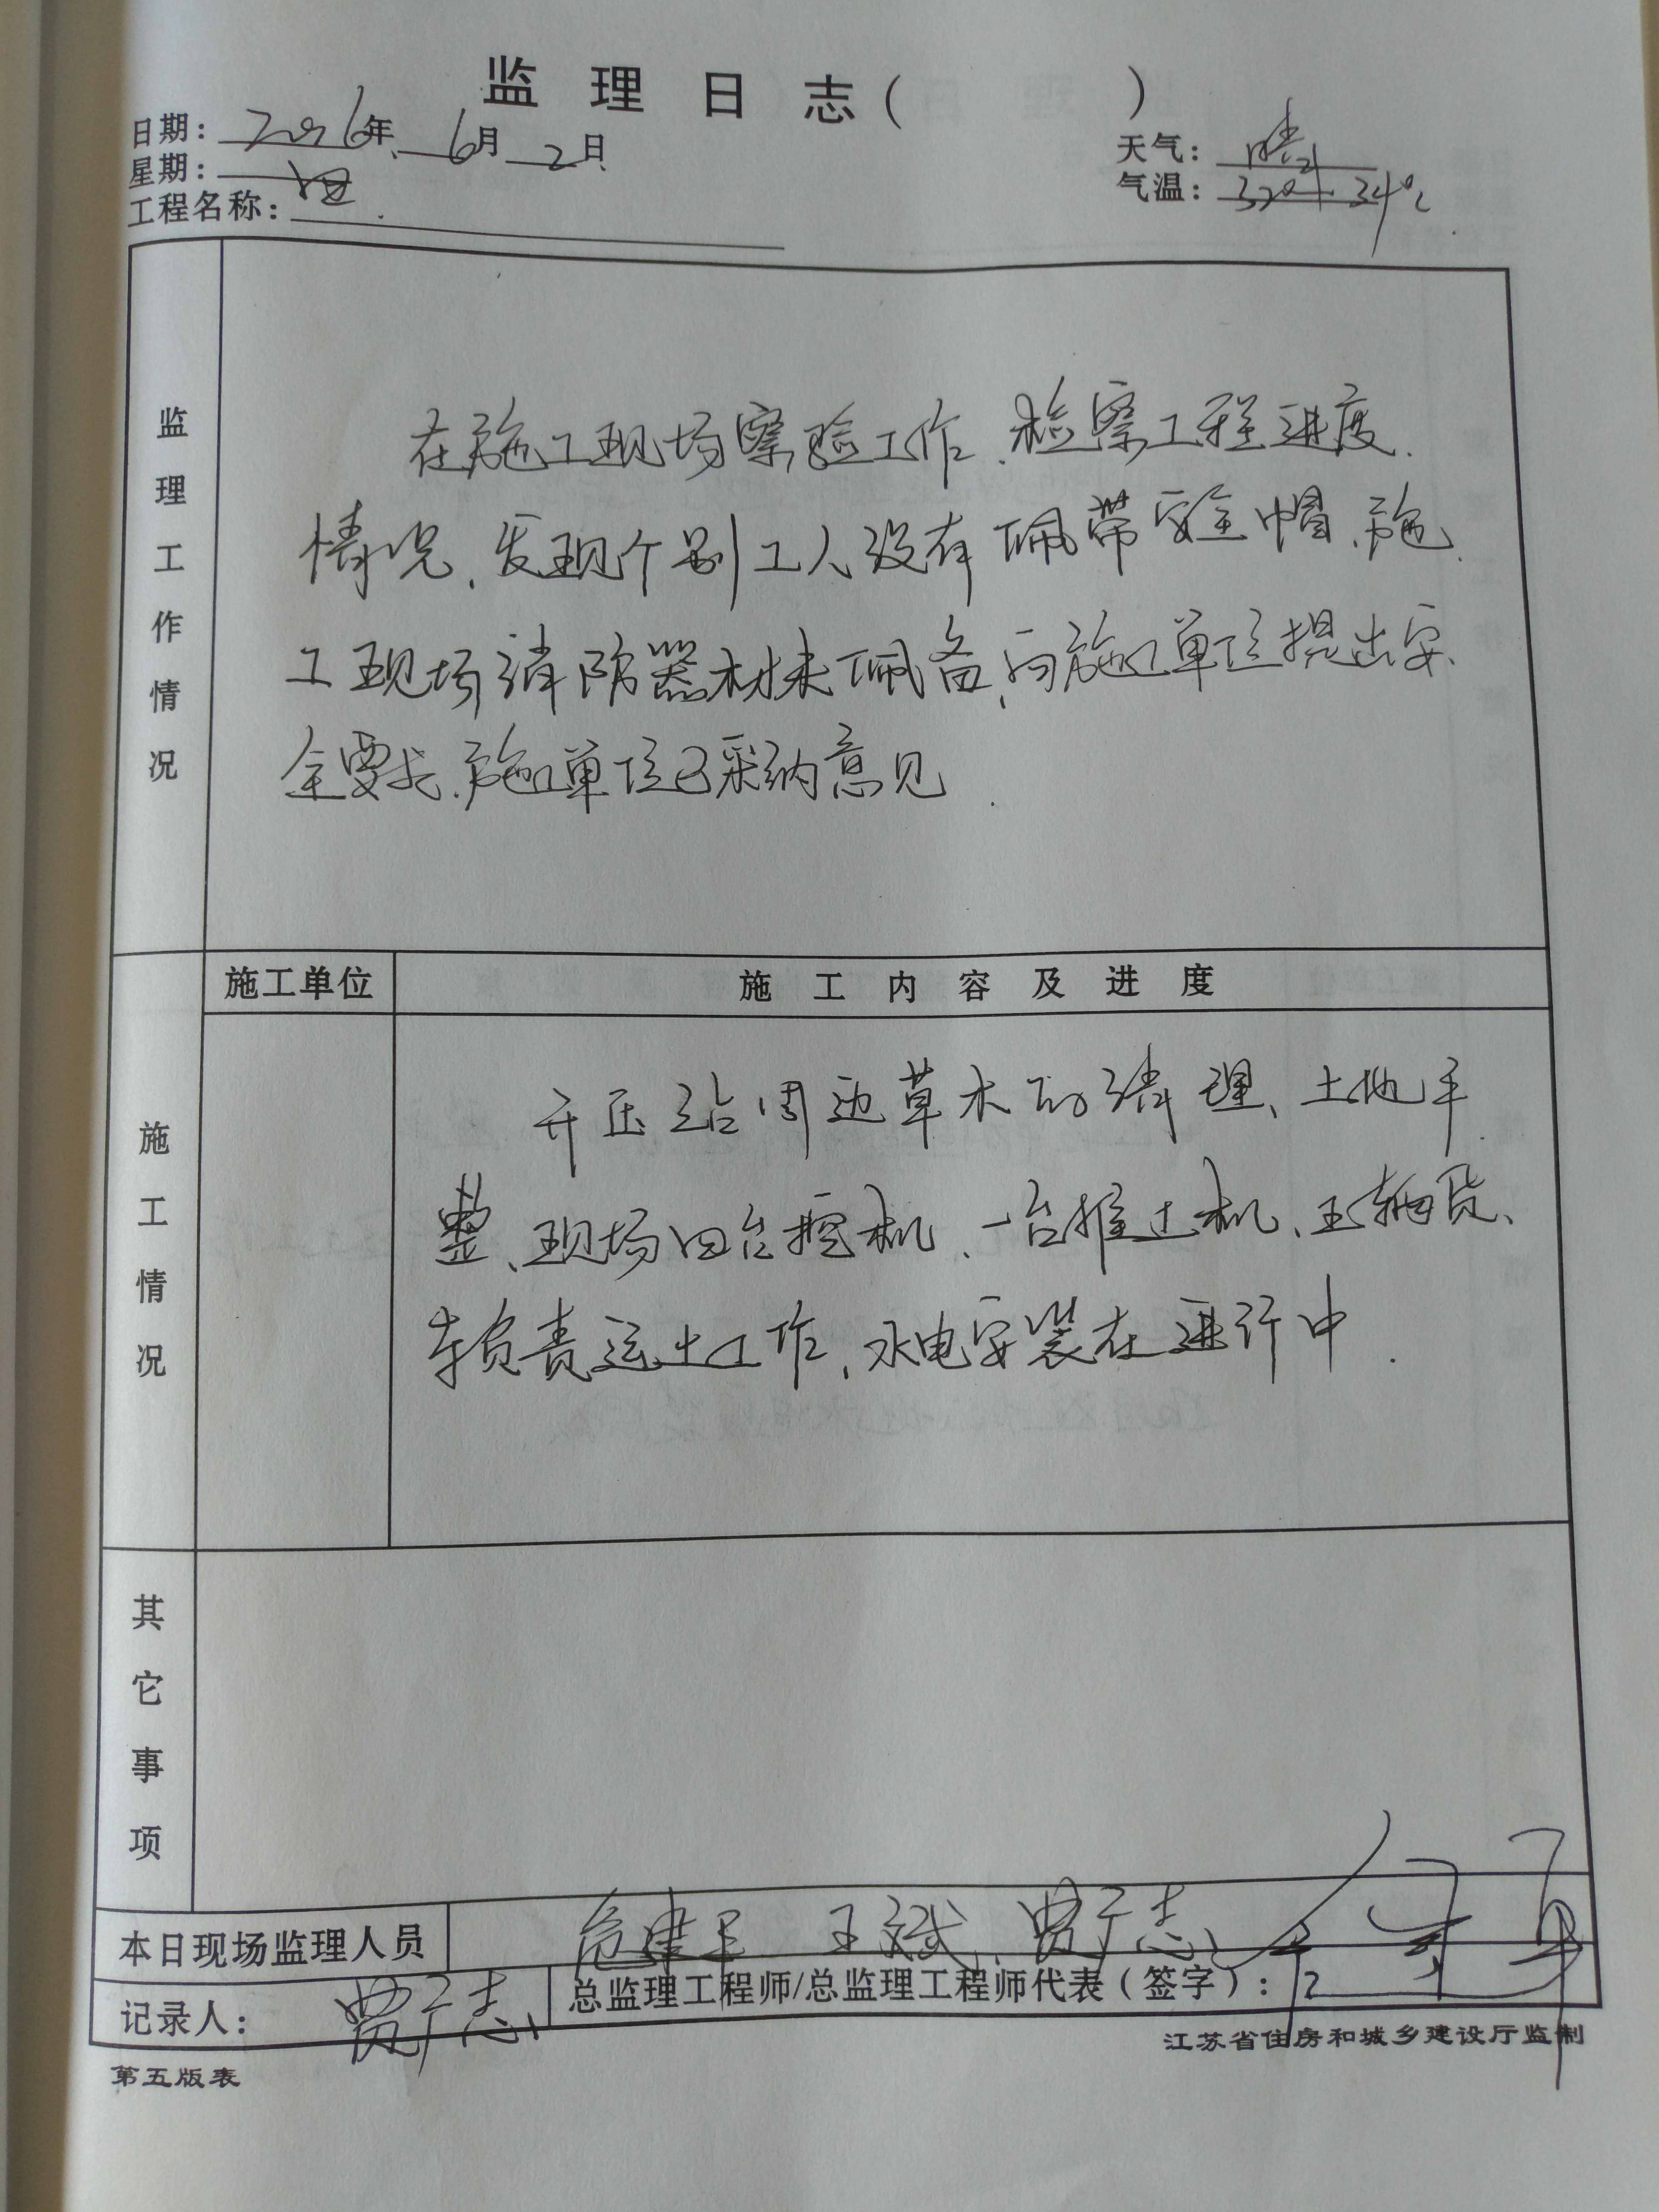 监理日志（　　）
日期：2016年6月2日
天气：晴
星期：四
气温：32℃ 34℃
工程名称：
监理工作情况
在施工现场察验工作、检察工程进度
情况、发现个别工人没有佩带安全帽、施
工现场消防器材未佩备、向施工单位提出安
全要求、施工单位已采纳意见
施工情况
施工单位
施工内容及进度
升压站周边草木的清理、土地平
整、现场四台挖机、一台推土机、五辆货
车负责运土工作、水电安装在进行中
其它事项
本日现场监理人员
王斌、贾广志
记录人：贾广志
总监理工程师/总监理工程师代表（签字）：
江苏省住房和城乡建设厅监制
第五版表